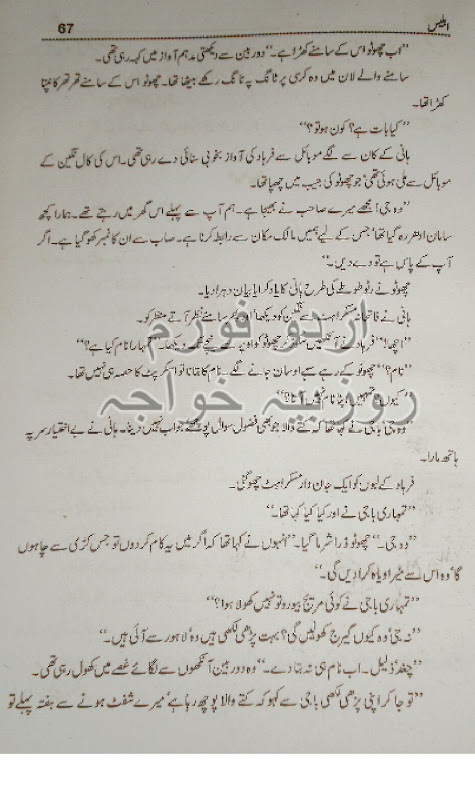 ابلیس
67
”اب چھوٹو اس کے سامنے کھڑا ہے۔“ دوربین سے دیکھتی مدہم آواز میں کہہ رہی تھی۔
سامنے والے لان میں وہ کرسی پر ٹانگ پہ ٹانگ رکھے بیٹھا تھا۔ چھوٹو اس کے سامنے تھر تھر کانپتا
کھڑا تھا۔
”کیا بات ہے؟ کون ہو تو؟“
ہانی کے کان سے لگے موبائل سے فرہاد کی آواز بخوبی سنائی دے رہی تھی۔ اس کی کال نگین کے
موبائل سے ملی ہوئی تھی جو چھوٹو کی جیب میں چھپا تھا۔
”وہ جی! مجھے میرے صاحب نے بھیجا ہے۔ ہم آپ سے پہلے اس گھر میں رہتے تھے۔ ہمارا کچھ
سامان ادھر رہ گیا تھا‘ جس کے لیے ہمیں مالک مکان سے رابطہ کرنا ہے۔ صاب سے ان کا نمبر کھو گیا ہے۔ اگر
آپ کے پاس ہے تو دے دیں۔“
چھوٹو نے رٹو طوطے کی طرح ہانی کا یاد کرایا بیان دہرا دیا۔
ہانی نے فاتحانہ مسکراہٹ سے نگین کو دیکھا‘ اور پھر سامنے نظر آتے منظر کو۔
”اچھا!“ فرہاد نے آنکھیں کر چھوٹو کو اوپر سے نیچے تک دیکھا۔ ”تمہارا نام کیا ہے؟“
”نام؟“ چھوٹو کے رہے سہے اوسان جانے لگے۔ نام کا بتانا تو اسکرپٹ کا حصہ ہی نہیں تھا۔
”کیوں؟ تمہیں اپنا نام نہیں آتا؟“
”وہ جی باجی نے کہا تھا کہ کتے والا جو بھی فضول سوال پوچھے جواب نہیں دینا۔ ہانی نے بے اختیار سر پہ
ہاتھ مارا۔
فرہاد کے لبوں کو ایک جان دار مسکراہٹ چھو گئی۔
”تمہاری باجی نے اور کیا کیا کہا تھا۔“
”وہ جی۔“ چھوٹو ذرا شرما گیا۔ ”انہوں نے کہا تھا کہ اگر میں یہ کام کر دوں تو جس کڑی سے چاہوں
گا‘ وہ اس سے میرا ویاہ کرا دیں گی۔“
”تمہاری باجی نے کوئی میریج بیورو تو نہیں کھولا ہوا؟“
”نہ جی‘ وہ کیوں گیرج کھولیں گی؟ بہت پڑھی لکھی ہیں وہ‘ لاہور سے آئی ہیں۔“
”چغد‘ ذلیل۔ اب نام ہی نہ بتا دے۔“ وہ دوربین آنکھوں سے لگائے غصے میں کھول رہی تھی۔
”تو جا کر اپنی پڑھی لکھی باجی سے کہو کہ کتے والا پوچھ رہا ہے‘ میرے شفٹ ہونے سے ہفتہ پہلے تو
اردو فورم
روزیہ خواجہ